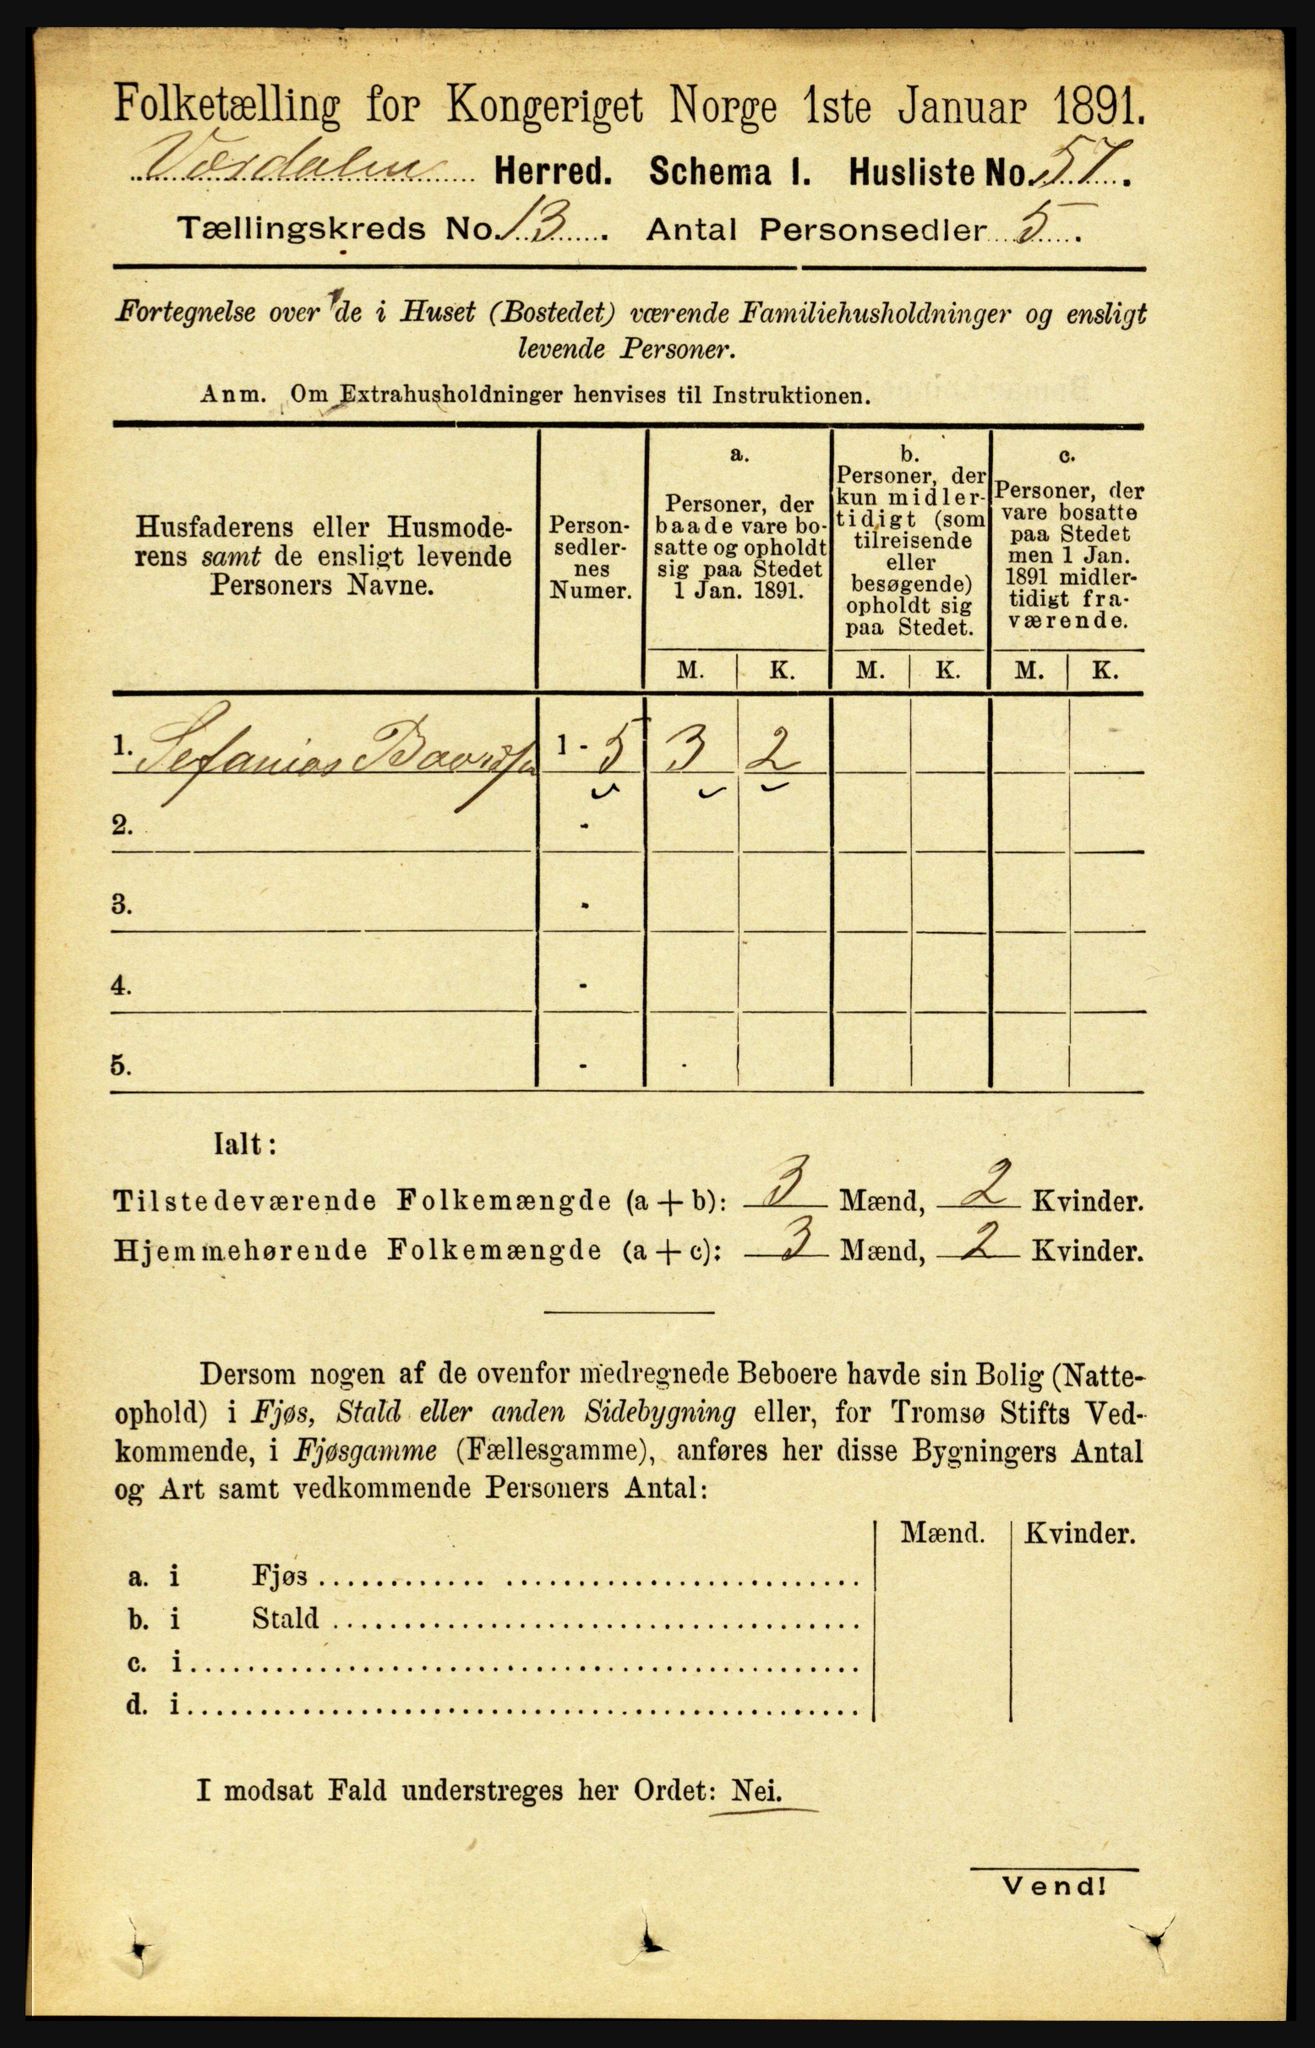 Folketælling for Kongeriget Norge 1ste Januar 1891.
Værdalen Herred. Schema I. Husliste No. 57.
Tællingskreds No. 13. Antal Personsedler 5.
Fortegnelse over de i Huset (Bostedet) værende Familiehusholdninger og ensligt
levende Personer.
Anm. Om Extrahusholdninger henvises til Instruktionen.
Husfaderens eller Husmode-
rens samt de ensligt levende
Personers Navne.
Person-
sedler-
nes
Numer.
a.
Personer, der
baade vare bo-
satte og opholdt
sig paa Stedet
1 Jan. 1891.
b.
Personer, der
kun midler-
tidigt (som
tilreisende
eller
besøgende)
opholdt sig
paa Stedet.
c.
Personer, der
vare bosatte
paa Stedet
men 1 Jan.
1891 midler-
tidigt fra-
værende.
M. K. M. K. M. K.
1. Sefanias 1 - 5 3 2
2. -
3. -
4. -
5. -
Ialt:
Tilstedeværende Folkemængde (a + b): 3 Mænd, 2 Kvinder.
Hjemmehørende Folkemængde (a + c): 3 Mænd, 2 Kvinder.
Dersom nogen af de ovenfor medregnede Beboere havde sin Bolig (Natte-
ophold) i Fjøs, Stald eller anden Sidebygning eller, for Tromsø Stifts Ved-
kommende, i Fjøsgamme (Fællesgamme), anføres her disse Bygningers Antal
og Art samt vedkommende Personers Antal:
Mænd. Kvinder.
a. i Fjøs
b. i Stald
c. i
d. i
I modsat Fald understreges her Ordet: Nei.
Vend!